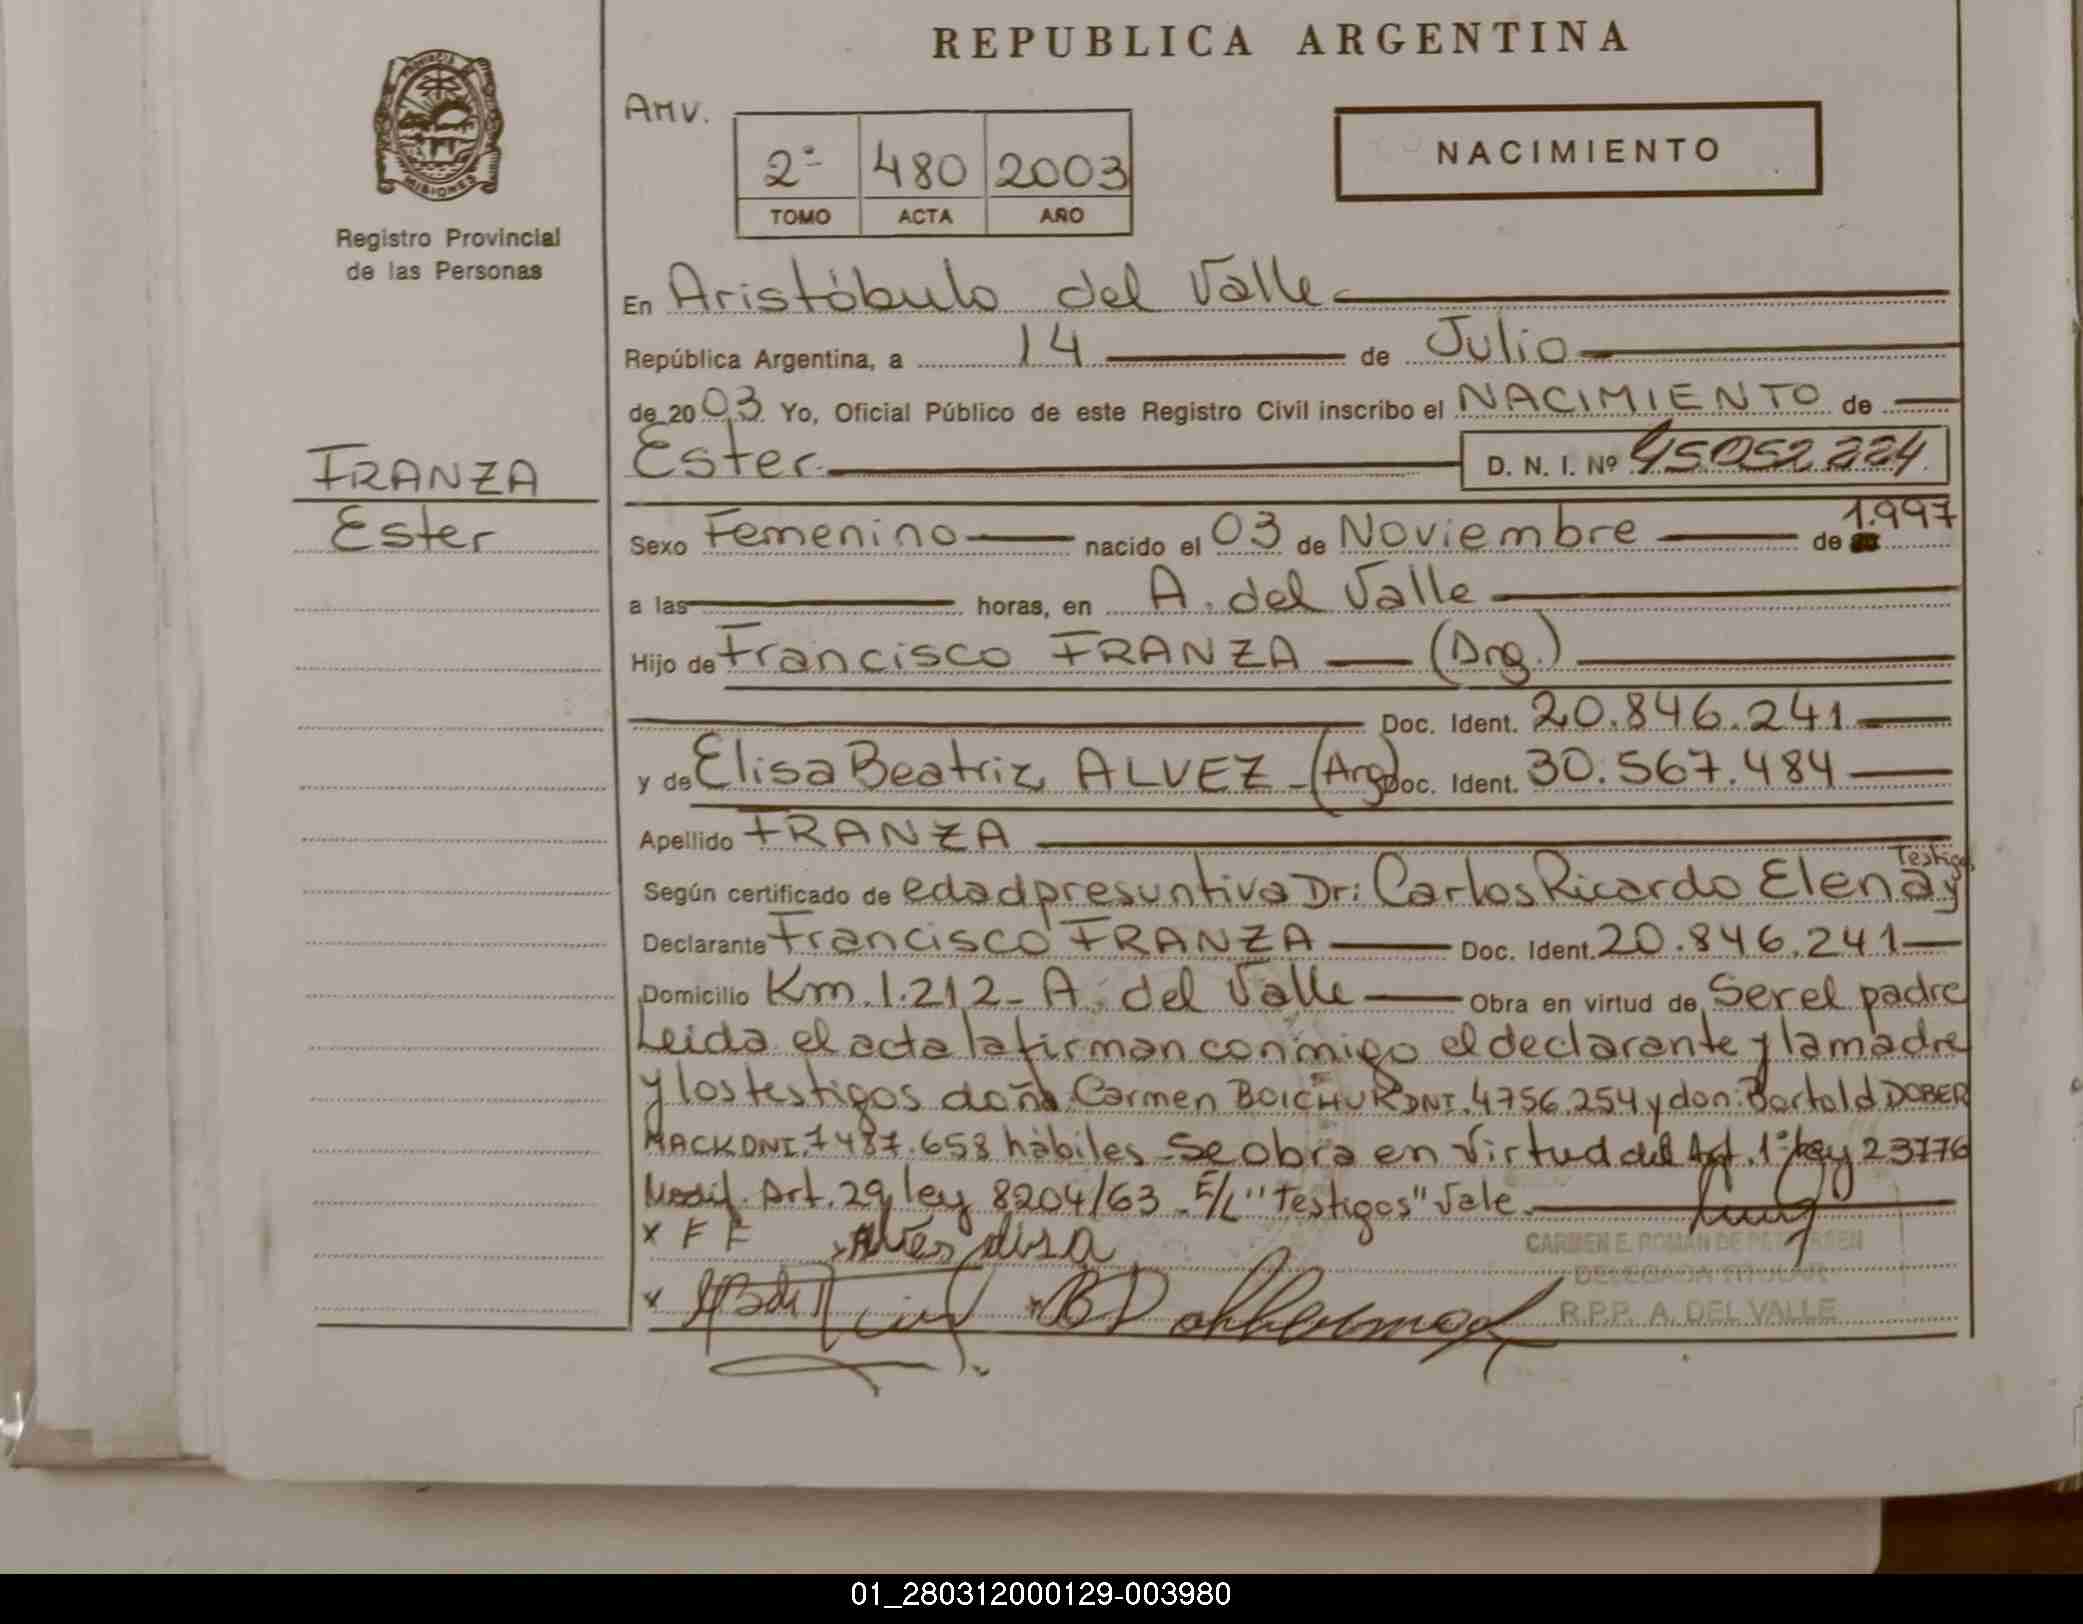 REPUBLICA ARGENTINA
PROVINCIA DE
MISIONES
Registro Provincial
de las Personas
AMV.
2º 480 2003
TOMO ACTA AÑO
NACIMIENTO
En Aristóbulo del Valle
República Argentina, a 14 de Julio
de 2003 Yo, Oficial Público de este Registro Civil inscribo el NACIMIENTO de
FRANZA
Ester
Ester D. N. I. Nº 45052224
Sexo Femenino nacido el 03 de Noviembre de 1.997
a las horas, en A. del Valle
Hijo de Francisco FRANZA (Arg.)
Doc. Ident. 20.846.241
y de Elisa Beatriz ALVEZ - (Arg) Doc. Ident. 30.567.484
Apellido FRANZA
Testigo
Según certificado de edad presuntiva Dr: Carlos Ricardo Elena y
Declarante Francisco FRANZA Doc. Ident. 20.846.241
Domicilio Km. 1.212 - A. del Valle Obra en virtud de Ser el padre
Leida el acta la firman conmigo el declarante y la madre
y los testigos doña Carmen BOICHUK DNI. 4756.254 y don: Bartold DOBER
MACK DNI. 7487.658 hábiles - Se obra en virtud del Art. 1º ley 23776
Modif. Art. 29 ley 8204/63 - E/L "Testigos" Vale
x F F x Alves elisa
CARMEN E. ROMAN DE
DELEGADA TITULAR
R.P.P. A. DEL VALLE
01_280312000129-003980